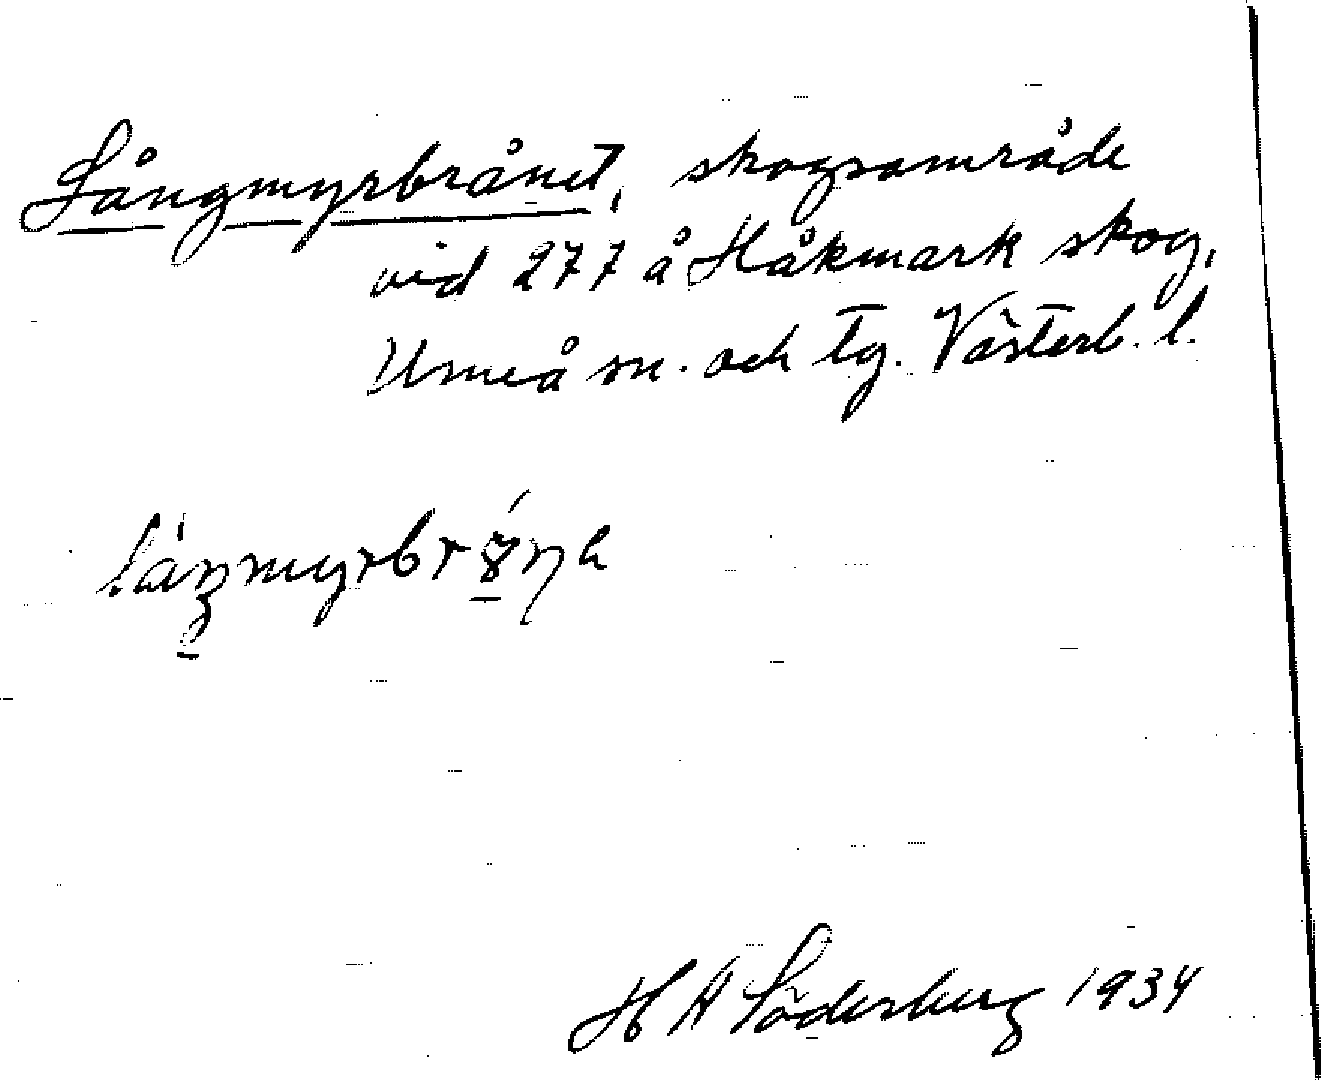 Långmyrbrånet, skogsområde
vid 277 å Håkmark skog,
Umeå sn. och tg. Västerb. l.
H A Söderberg 1934